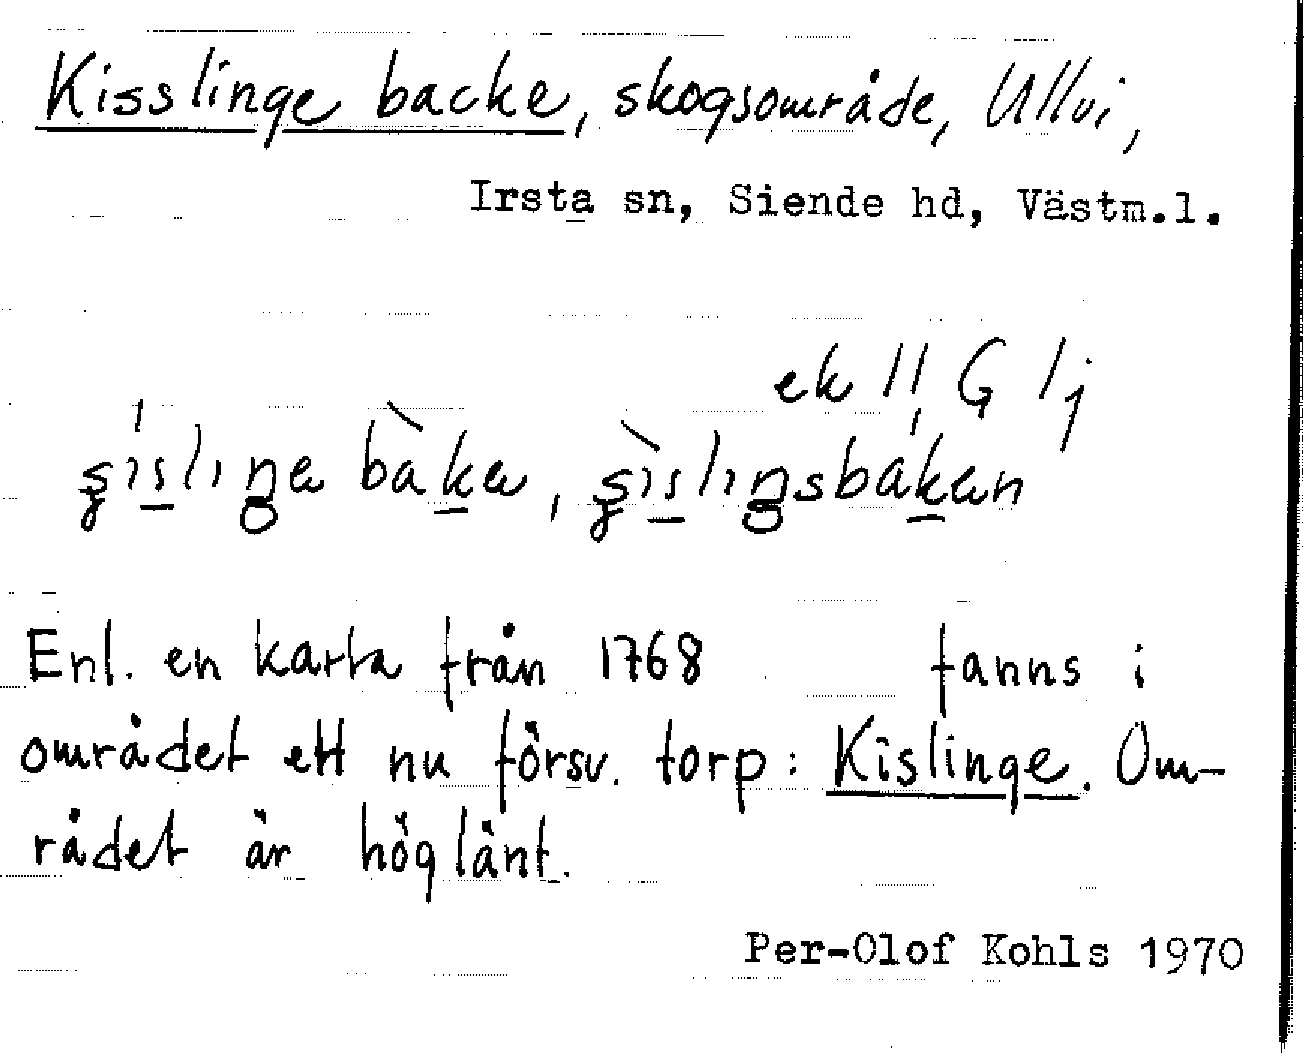 Kisslinge backe, skogsområde, Ullvi,
Irsta sn, Siende hd, Västm.l.
ek 11 G 1j
Enl. en karta från 1768 fanns i
området ett nu försv. torp: Kislinge. Om-
rådet är höglänt.
Per-Olof Kohls 1970